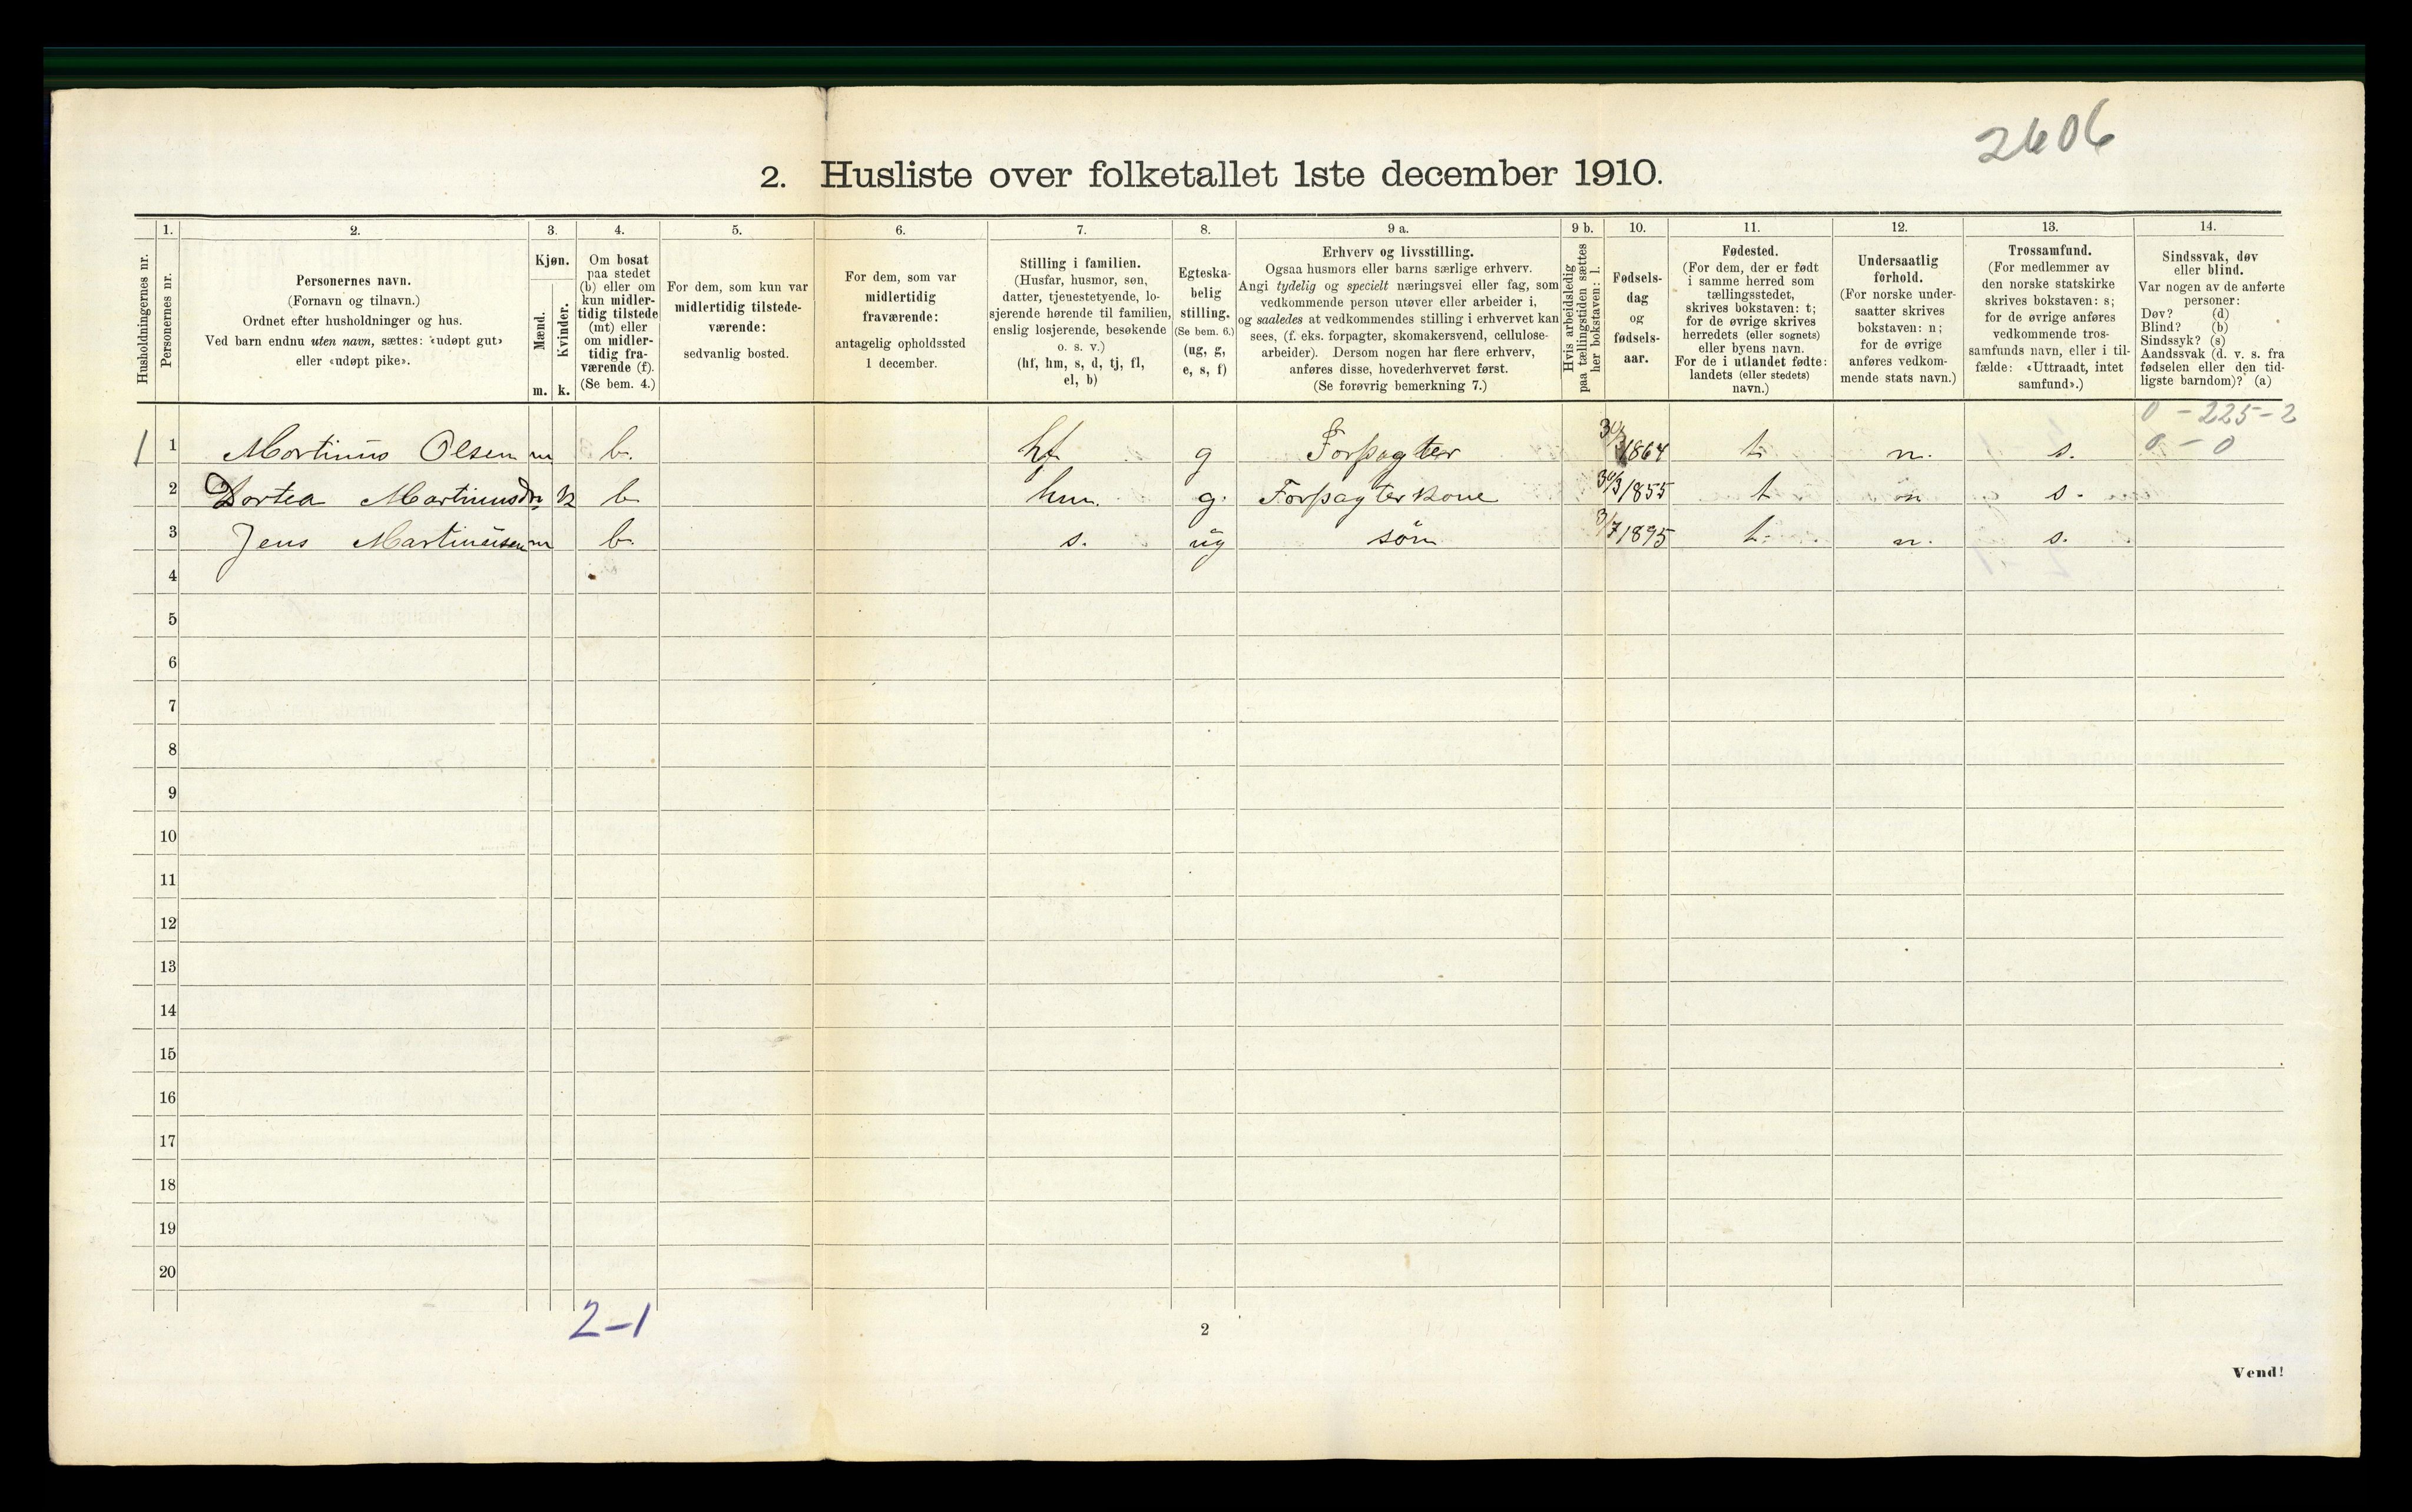 2606
2. Husliste over folketallet 1ste december 1910.
1. 2. 3. 4. 5. 6. 7. 8. 9 a. 9 b. 10. 11. 12. 13. 14.
Husholdningernes nr.
Personernes nr.
Personernes navn.
(Fornavn og tilnavn.)
Ordnet efter husholdninger og hus.
Ved barn endnu uten navn, sættes: «udøpt gut»
eller «udøpt pike».
Kjøn.
Mænd.
Kvinder.
m. k.
Om bosat
paa stedet
(b) eller om
kun midler-
tidig tilstede
(mt) eller
om midler-
tidig fra-
værende (f).
(Se bem. 4.)
For dem, som kun var
midlertidig tilstede-
værende:
sedvanlig bosted.
For dem, som var
midlertidig
fraværende:
antagelig opholdssted
1 december.
Stilling i familien.
(Husfar, husmor, søn,
datter, tjenestetyende, lo-
sjerende hørende til familien,
enslig losjerende, besøkende
o. s. v.)
(hf, hm, s, d, tj, fl,
el, b)
Egteska-
belig
stilling.
(Se bem. 6.)
(ug, g,
e, s, f)
Erhverv og livsstilling.
Ogsaa husmors eller barns særlige erhverv.
Angi tydelig og specielt næringsvei eller fag, som
vedkommende person utøver eller arbeider i,
og saaledes at vedkommendes stilling i erhvervet kan
sees, (f. eks. forpagter, skomakersvend, cellulose-
arbeider). Dersom nogen har flere erhverv,
anføres disse, hovederhvervet først.
(Se forøvrig bemerkning 7.)
Hvis arbeidsledig
paa tællingstiden sættes
her bokstaven: l.
Fødsels-
dag
og
fødsels-
aar.
Fødested.
(For dem, der er født
i samme herred som
tællingsstedet,
skrives bokstaven: t;
for de øvrige skrives
herredets (eller sognets)
eller byens navn.
For de i utlandet fødte:
landets (eller stedets)
navn.)
Undersaatlig
forhold.
(For norske under-
saatter skrives
bokstaven: n;
for de øvrige
anføres vedkom-
mende stats navn.)
Trossamfund.
(For medlemmer av
den norske statskirke
skrives bokstaven: s;
for de øvrige anføres
vedkommende tros-
samfunds navn, eller i til-
fælde: «Uttraadt, intet
samfund».)
Sindssvak, døv
eller blind.
Var nogen av de anførte
personer:
Døv? (d)
Blind? (b)
Sindssyk? (s)
Aandssvak (d. v. s. fra
fødselen eller den tid-
ligste barndom)? (a)
0 - 225 - 2
1 1 Martinus Olsen m b. hf g Forpagter 1864 t. n. s. 0 - 0
2 Dortea Martinusdr k b hm. g. Forpagterkone 30/3 1855 t n s.
3 Jens Martinusen m b. s. ug søn 3/7 1895 t. n. s.
4
5
6
7
8
9
10
11
12
13
14
15
16
17
18
19
20
2-1
2
Vend!